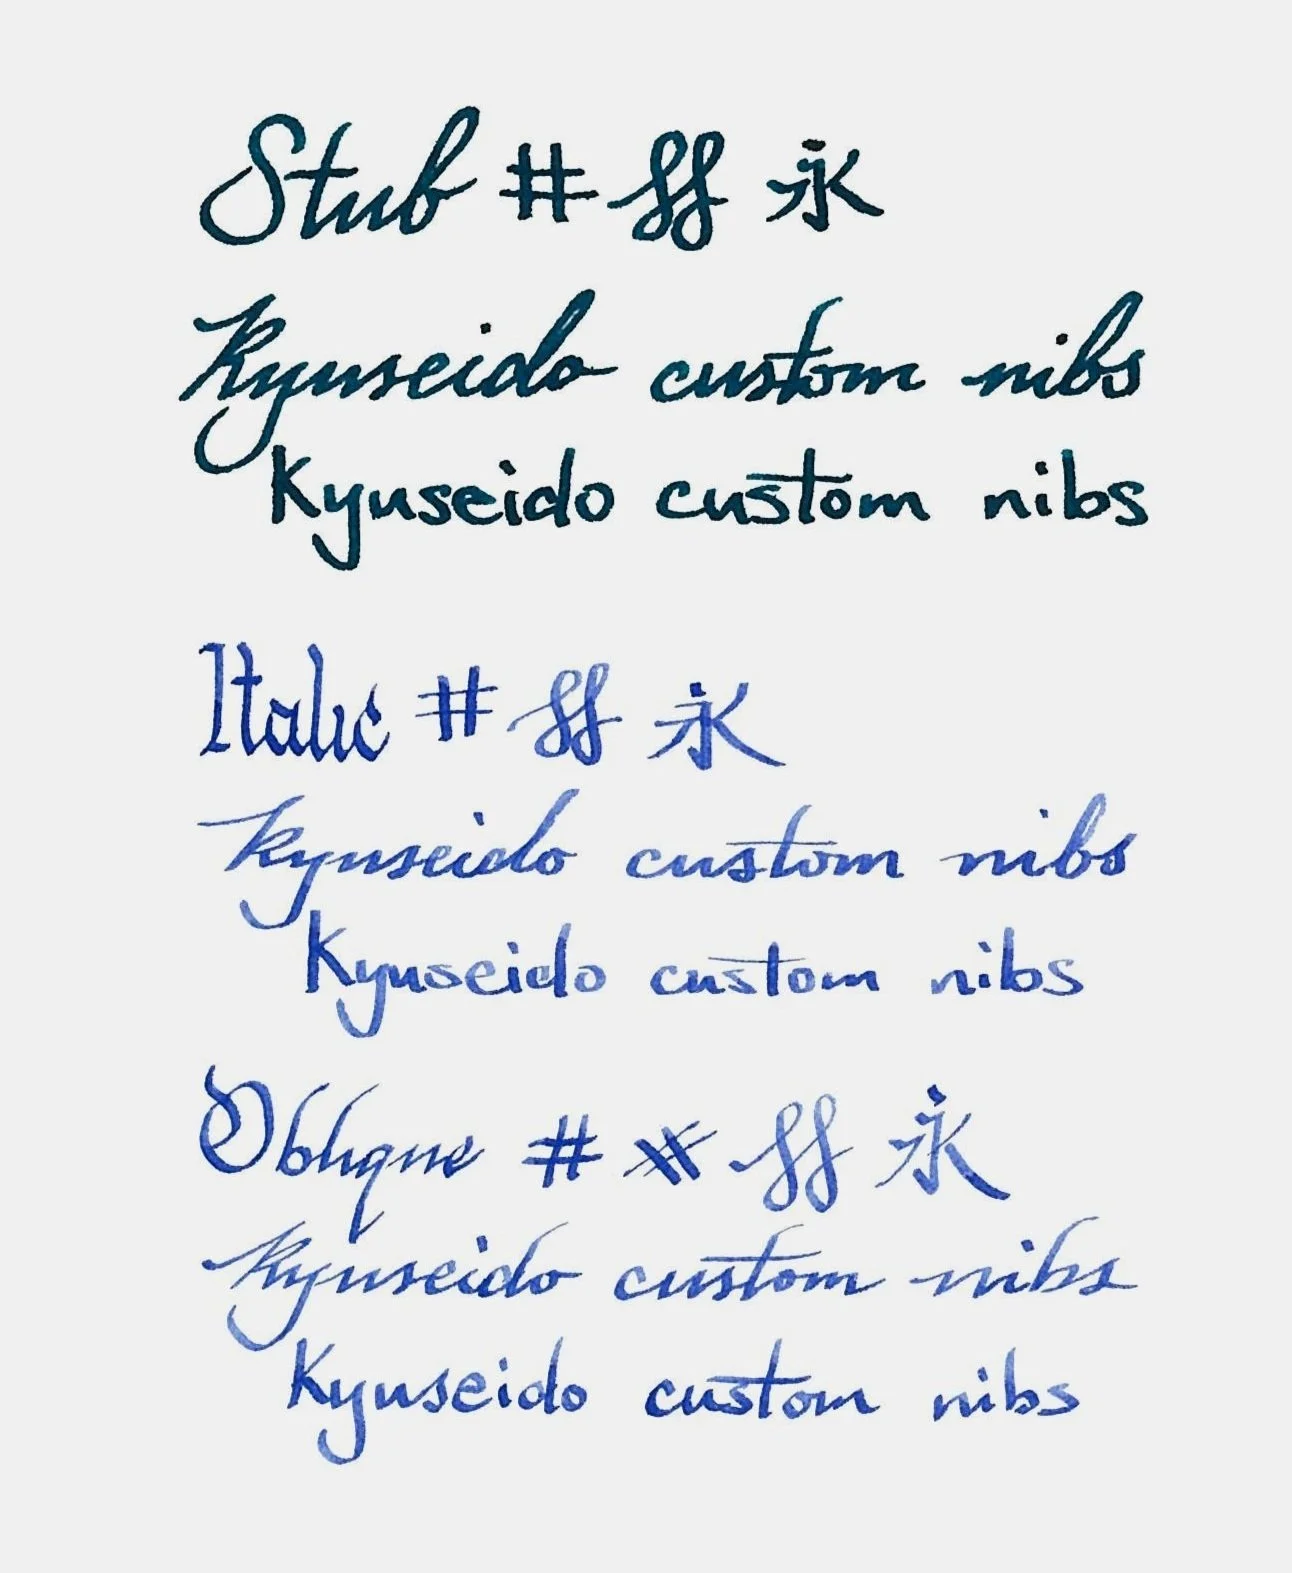 Stub # 永
Kyuseido custom nibs
Kyuseido custom nibs
Italic # 永
Kyuseido custom nibs
Kyuseido custom nibs
Oblique # # 永
Kyuseido custom nibs
Kyuseido custom nibs